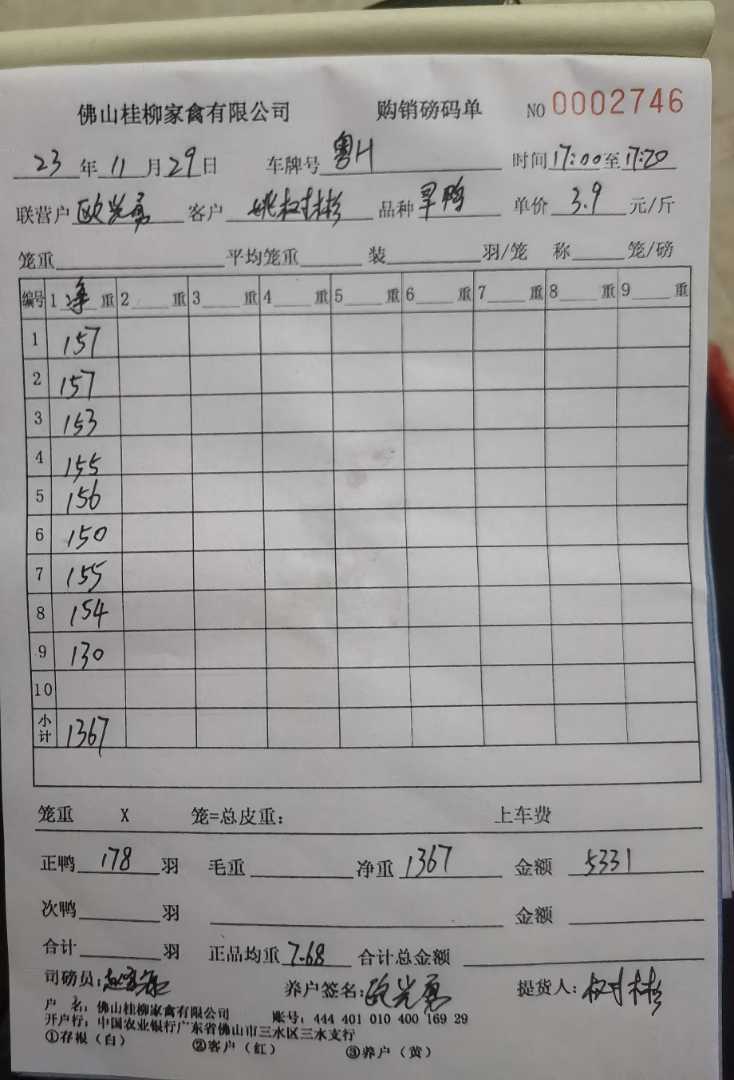 佛山桂柳家禽有限公司 购销磅码单 NO 0002746
23年11月29日 车牌号 粤H 时间17:00至17:20
联营户 欧光勇 客户 姚权彬 品种 旱鸭 单价 3.9 元/斤
笼重 平均笼重 装 羽/笼 称 笼/磅
编号 1 净 重 2 重 3 重 4 重 5 重 6 重 7 重 8 重 9 重
1 157
2 157
3 153
4 155
5 156
6 150
7 155
8 154
9 130
10
小计 1367
笼重 X 笼=总皮重: 上车费
正鸭 178 羽 毛重 净重 1367 金额 5331
次鸭 羽 金额
合计 羽 正品均重 7.68 合计总金额
司磅员: 养户签名: 欧光勇 提货人: 权彬
户 名: 佛山桂柳家禽有限公司 账号: 444 401 010 400 169 29
开户行: 中国农业银行广东省佛山市三水区三水支行
①存根(白) ②客户(红) ③养户(黄)